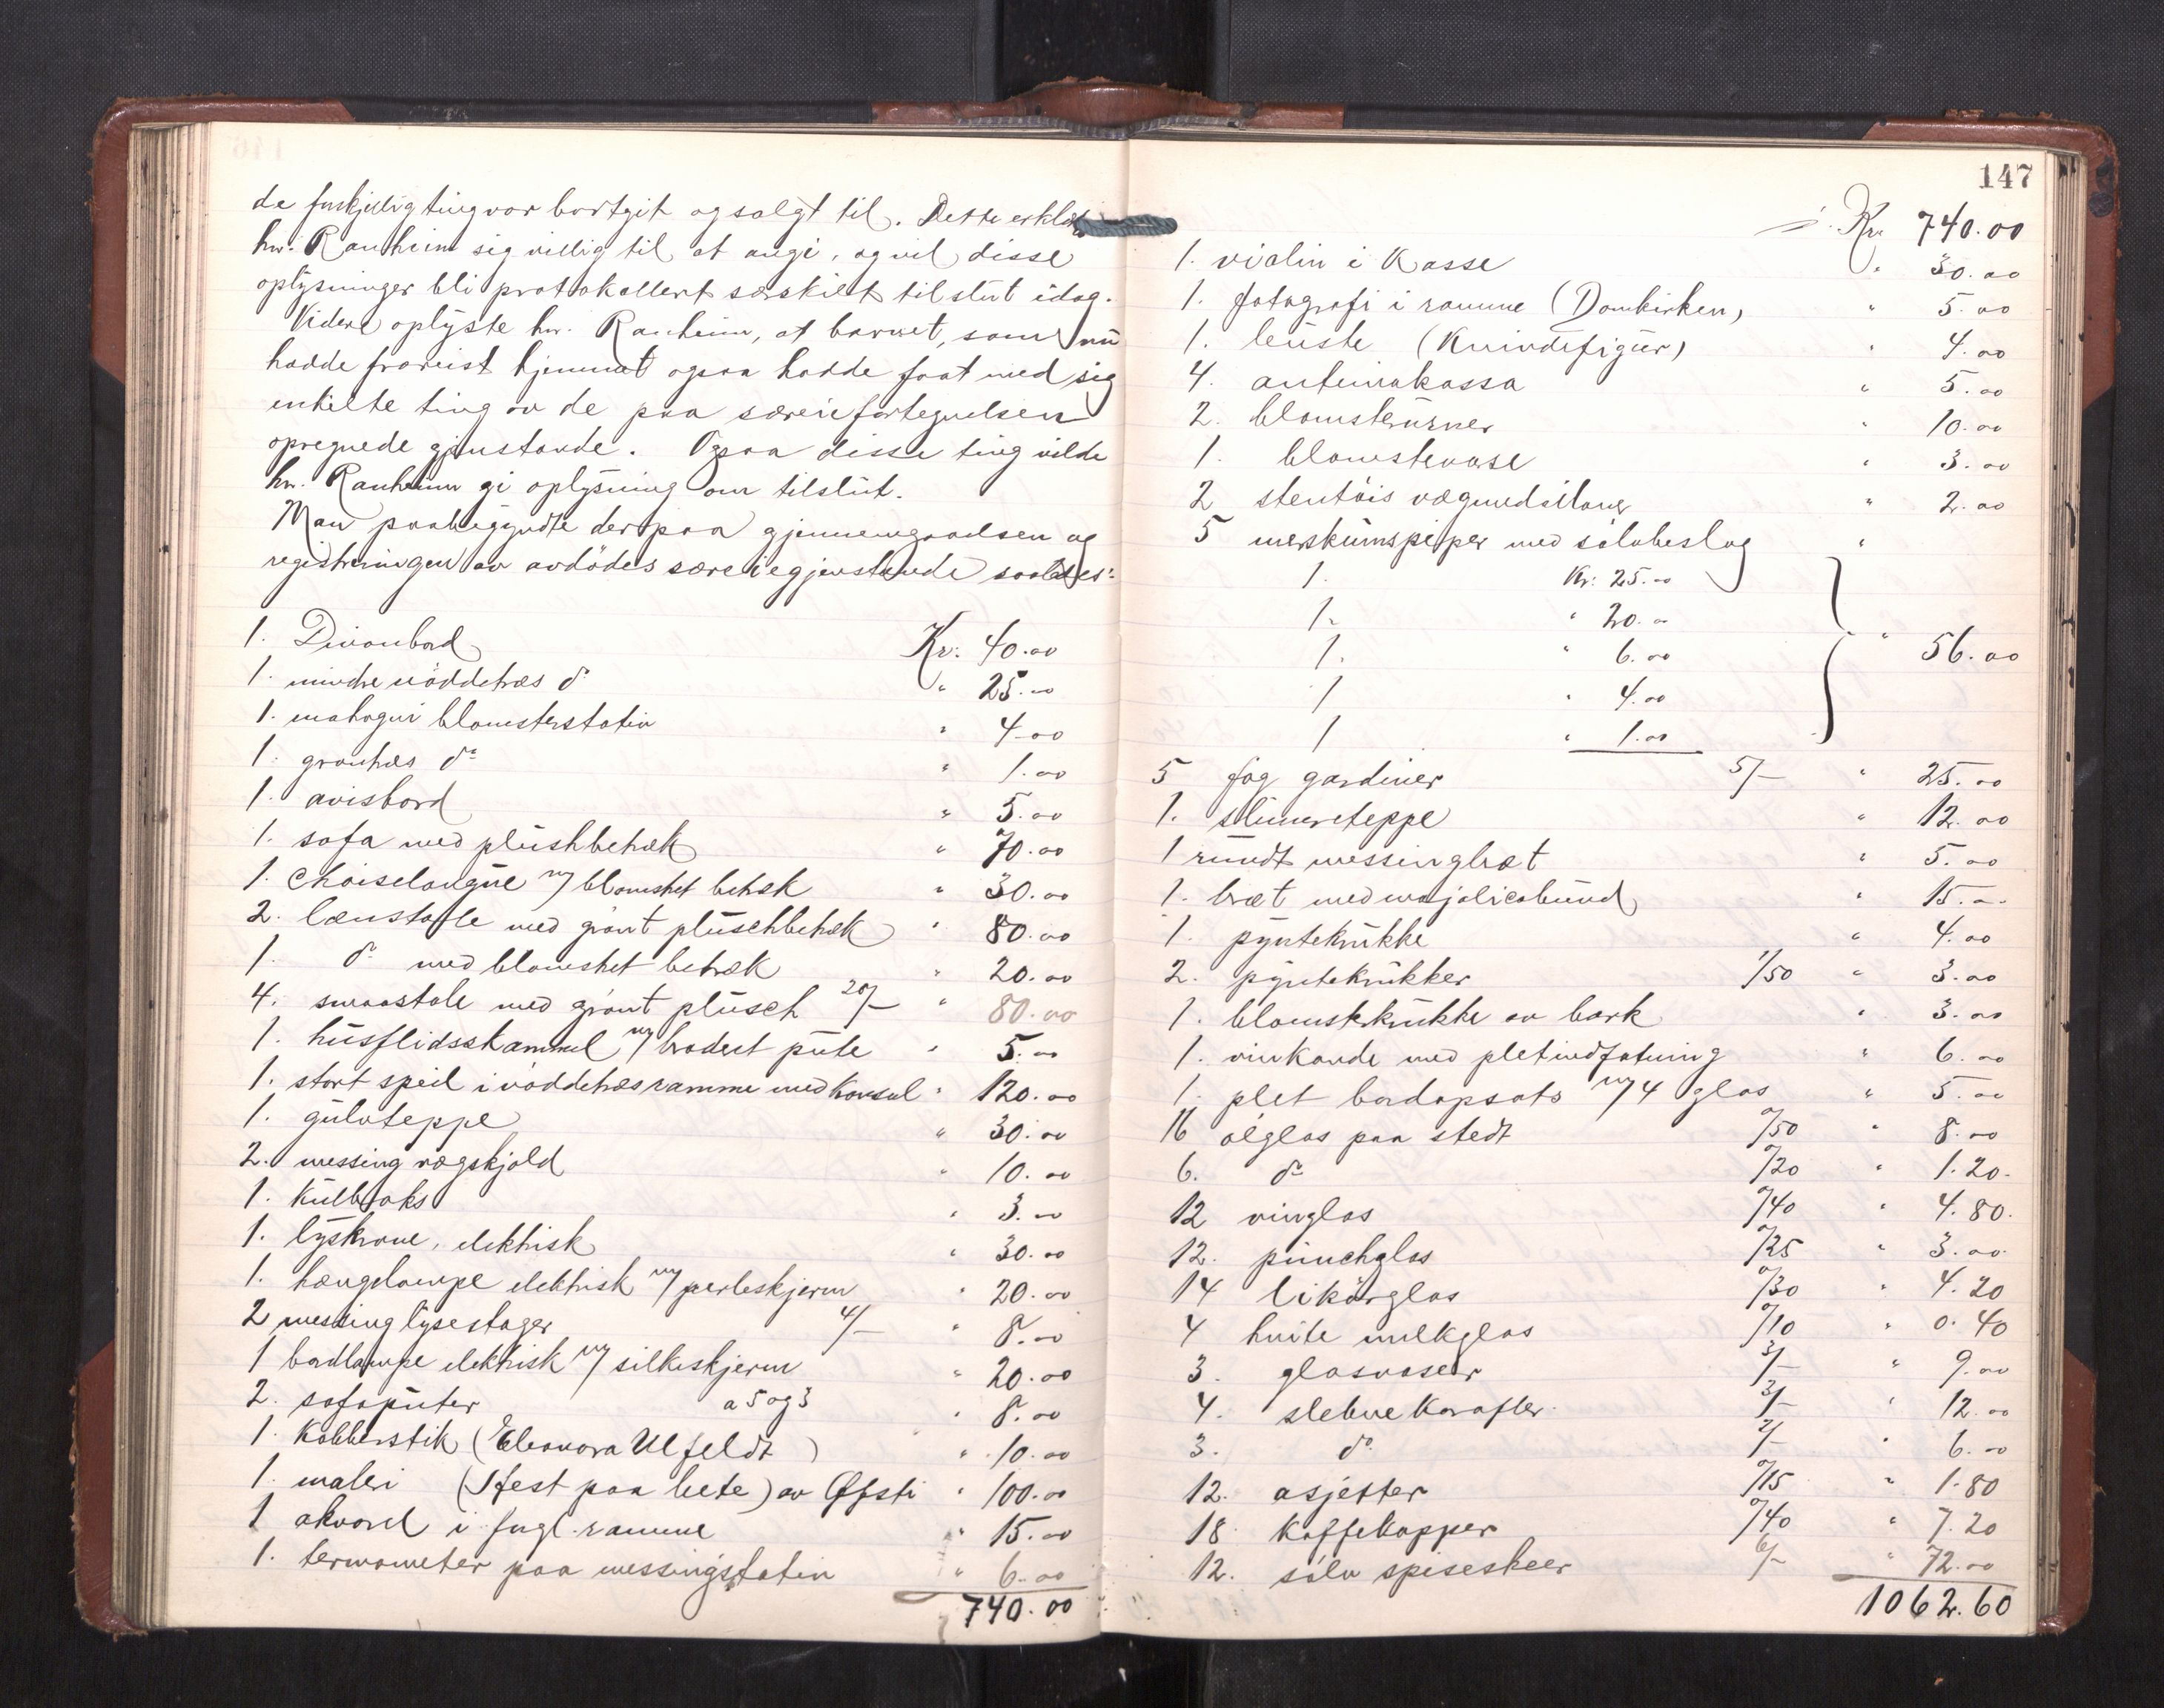 de forskjellig ting var bortgit og solgt til. Dette erklærte
hr. Ranheim sig villig til at angi, og vil disse
oplysninger bli protokollert særskilt tilslut idag.
Videre oplyste hr. Ranheim, at barnet, som nu
hadde forreist hjemmet ogsaa hadde faat med sig
enkelte ting av de paa særeiefortegnelsen
opregnede gjenstande. Ogsaa disse ting vilde
hr. Ranheim gi oplysning om tilslut.
Man paabegyndte derpaa gjennemgaaelsen og
registreringen av avdödes særeiegjenstande saaledes:
1. Divanbord Kr. 40.00
1. mindre nöddetræs do " 25.00
1. mahogni blomsterstativ " 4.00
1. grantræs do " 1.00
1. avisbord " 5.00
1. sofa med plüshbetræk " 70.00
1. Chaiselongue m/ blomstret betræk " 30.00
2. lænstole med grönt plüschbetræk " 80.00
1. do med blomstret betræk " 20.00
4. smaastole med grönt plüsch 20/- " 80.00
1. husflidsskammel m/ brodert pute " 5.00
1. stort speil i nöddetræsramme med konsol " 120.00
1. gulvteppe " 30.00
2. messing vægskjold " 10.00
1. Kulboks " 3.00
1. lyskrone, elektrisk " 30.00
1. hængelampe elektrisk m/ perleskjerm " 20.00
2 messing lysestager 4/- " 8.00
1 bordlampe elektrisk m/ silkeskjerm " 20.00
2. sofaputer a 5 og 3 " 8.00
1. Kobberstik (Eleonora Ulfeldt) " 10.00
1. maleri (Hest paa beite) av Offsti " 100.00
1 akvarel i forgl. ramme " 15.00
1. termometer paa messingstativ " 6.00
740.00
147
Kr. 740.00
1. violin i Kasse " 30.00
1. fotografi i ramme (Domkirken) " 5.00
1. büste (Kvindefigur) " 4.00
4. antemakassa " 5.00
2. blomsterurner " 10.00
1. blomstervase " 3.00
2 stentöis vægmedaljoner " 2.00
5 merskumspiper med sölvbeslag "
1. Kr. 25.00
1. " 20.00
1. " 6.00 " 56.00
1 " 4.00
1 " 1.00
5 fag gardiner 5/- " 25.00
1. slumreteppe " 12.00
1 rundt messingbræt " 5.00
1. bræt med majolicabund " 15.00
1. pyntekrukke " 4.00
2. pyntekrukker 1/50 " 3.00
1. blomsterkrukke av bark " 3.00
1. vinkande med pletindfatning " 6.00
1. plet bordopsats m/ 4 glas " 5.00
16 ölglas paa stedt 0/50 " 8.00
6. do 0/20 " 1.20
12 vinglas 0/40 " 4.80
12. punchglas 0/25 " 3.00
14 likörglas 0/30 " 4.20
4 hvite melkglas 0/10 " 0.40
3. glasvaser 3/- " 9.00
4. slebne karafler 3/- " 12.00
3. do 2/- " 6.00
12. asjetter 0/15 " 1.80
18. kaffekopper 0/40 " 7.20
12. sölv spiseskeer 6/- " 72.00
1062.60